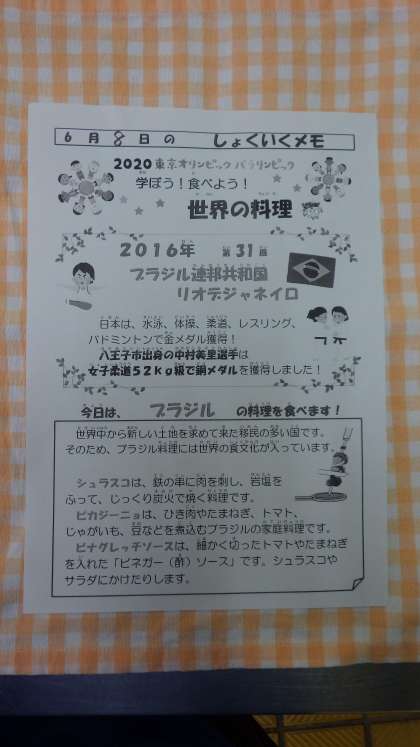 6月8日の しょくいくメモ
2020東京オリンピック パラリンピック
学ぼう！食べよう！
世界の料理
2016年 第31回
ブラジル連邦共和国
リオデジャネイロ
日本は、水泳、体操、柔道、レスリング、
バドミントンで金メダル獲得！
八王子市出身の中村美里選手は
女子柔道52kg級で銅メダルを獲得しました！
今日は、 ブラジル の料理を食べます！
世界中から新しい土地を求めて来た移民の多い国です。
そのため、ブラジル料理には世界の食文化が入っています。
シュラスコは、鉄の串に肉を刺し、岩塩を
ふって、じっくり炭火で焼く料理です。
ピカジーニョは、ひき肉やたまねぎ、トマト、
じゃがいも、豆などを煮込むブラジルの家庭料理です。
ビナグレッチソースは、細かく切ったトマトやたまねぎ
を入れた「ビネガー（酢）ソース」です。シュラスコや
サラダにかけたりします。